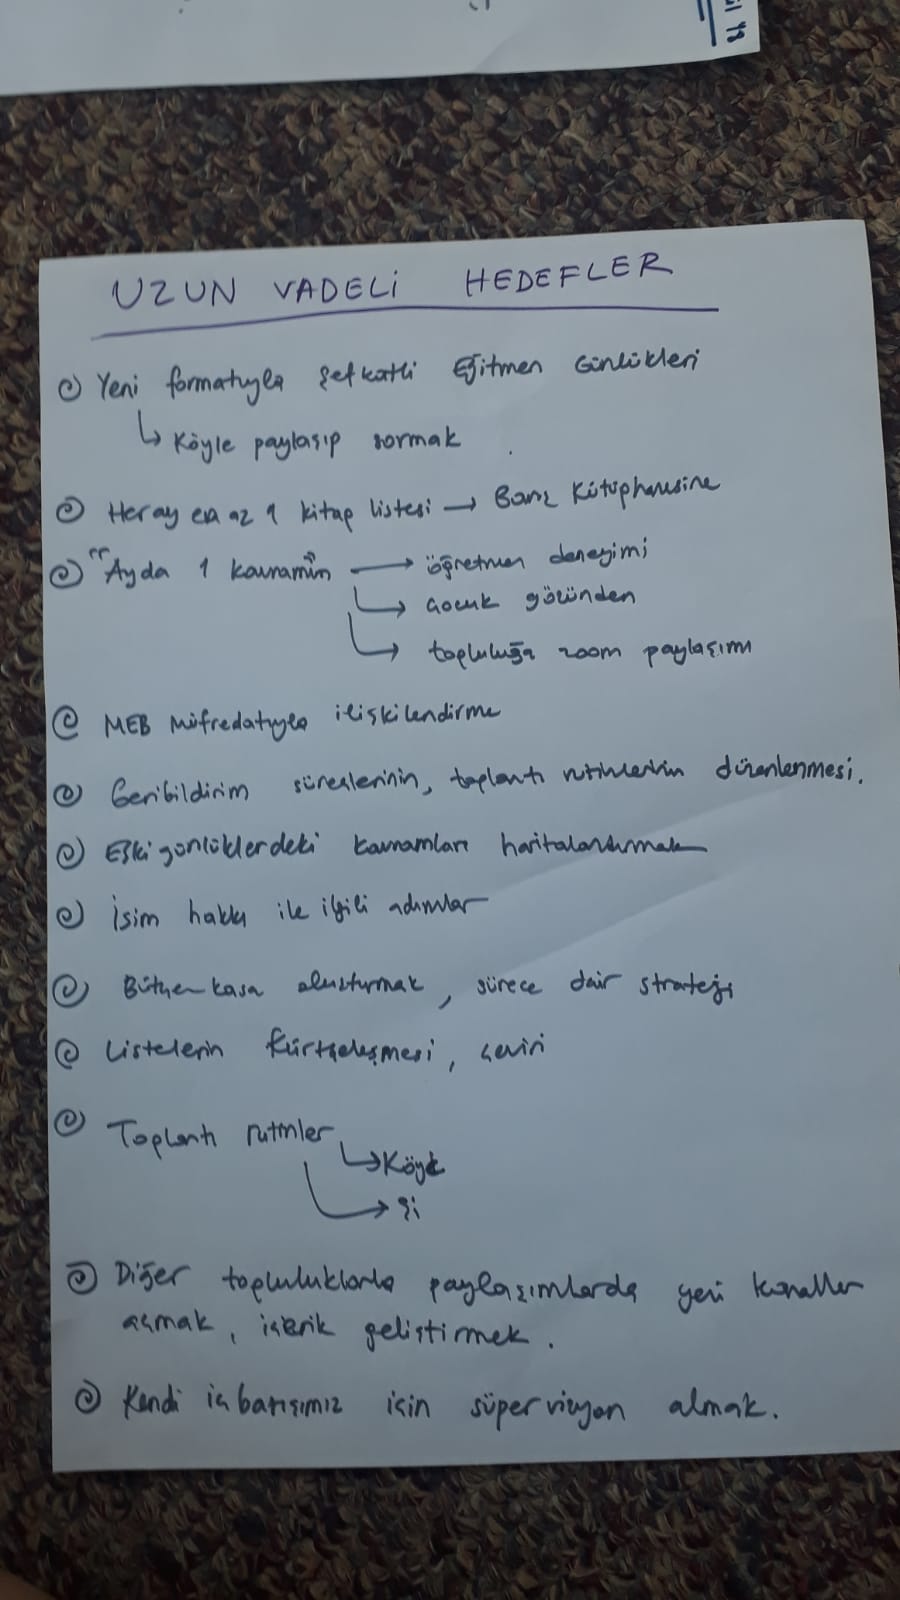 UZUN VADELİ HEDEFLER
Yeni formatıyla Şefkatli Eğitmen Günlükleri
↳ Köyle paylaşıp sormak
Her ay en az 1 kitap listesi → Barış Kütüphanesine
"Ayda 1 kavramın" → öğretmen deneyimi
→ çocuk gözünden
→ topluluğa zoom paylaşımı
MEB müfredatıyla ilişkilendirme
Geribildirim süreçlerinin, toplantı rutinlerinin düzenlenmesi.
Eski günlüklerdeki kavramları haritalandırmak
İsim hakkı ile ilgili adımlar
Bütçe kasa oluşturmak, sürece dair strateji
Listelerin Kürtçeleşmesi, çeviri
Toplantı rutinler
→ Köyle
→ Şi
Diğer topluluklarla paylaşımlarda yeni kanallar
açmak, içerik geliştirmek.
Kendi iç barışımız için süpervizyon almak.